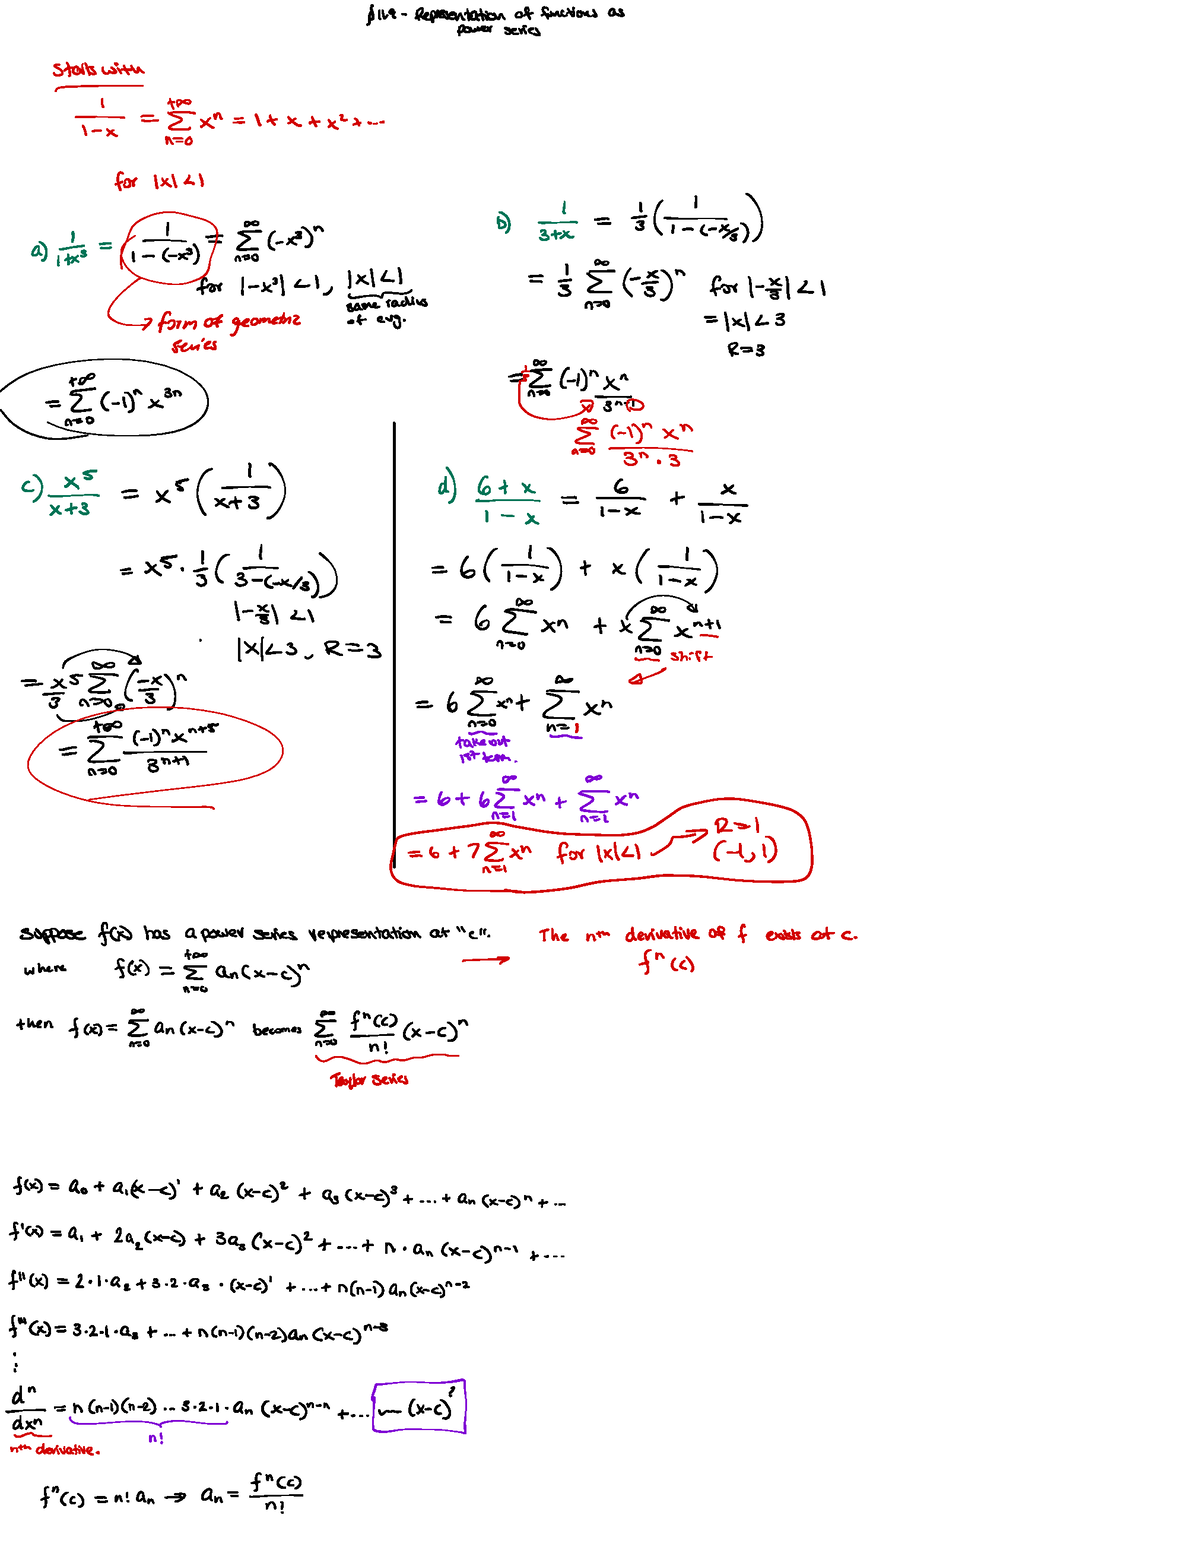 §11.9 - Representation of functions as
power series
Starts with
1/(1-x) = +∞ Σ n=0 xⁿ = 1 + x + x² + ...
for |x| < 1
a) 1/(1+x³) = 1/(1-(-x³)) = ∞ Σ n=0 (-x³)ⁿ
for |-x³| < 1, |x| < 1
same radius
of cvg.
→ form of geometric
series
= +∞ Σ n=0 (-1)ⁿ x³ⁿ
b) 1/(3+x) = 1/3 (1/(1-(-x/3)))
= 1/3 ∞ Σ n=0 (-x/3)ⁿ for |-x/3| < 1
= |x| < 3
R=3
= ∞ Σ n=0 (-1)ⁿ xⁿ/3ⁿ⁺¹
∞ Σ n=0 (-1)ⁿ xⁿ/(3ⁿ · 3)
c) x⁵/(x+3) = x⁵ (1/(x+3))
= x⁵ · 1/3 (1/(3-(-x/3)))
|-x/3| < 1
|x| < 3, R=3
= x⁵/3 ∞ Σ n=0 (-x/3)ⁿ
= +∞ Σ n=0 (-1)ⁿ xⁿ⁺⁵/3ⁿ⁺¹
d) (6+x)/(1-x) = 6/(1-x) + x/(1-x)
= 6 (1/(1-x)) + x (1/(1-x))
= 6 ∞ Σ n=0 xⁿ + x ∞ Σ n=0 xⁿ⁺¹
shift
= 6 ∞ Σ n=0 xⁿ + ∞ Σ n=1 xⁿ
take out
1st term.
= 6 + 6 ∞ Σ n=1 xⁿ + ∞ Σ n=1 xⁿ
= 6 + 7 ∞ Σ n=1 xⁿ for |x| < 1 → R=1
(-1, 1)
Suppose f(x) has a power series representation at "c". → The nth derivative of f exists at c.
where f(x) = +∞ Σ n=0 an(x-c)ⁿ
fⁿ(c)
then f(x) = ∞ Σ n=0 an(x-c)ⁿ becomes ∞ Σ n=0 fⁿ(c)/n! (x-c)ⁿ
Taylor Series
f(x) = a₀ + a₁(x-c)¹ + a₂(x-c)² + a₃(x-c)³ + ... + an(x-c)ⁿ + ...
f'(x) = a₁ + 2a₂(x-c) + 3a₃(x-c)² + ... + n · an(x-c)ⁿ⁻¹ + ...
f''(x) = 2·1·a₂ + 3·2·a₃ · (x-c)¹ + ... + n(n-1)an(x-c)ⁿ⁻²
f'''(x) = 3·2·1·a₃ + ... + n(n-1)(n-2)an(x-c)ⁿ⁻³
⋮
dⁿ/dxⁿ = n(n-1)(n-2)...3·2·1·an(x-c)ⁿ⁻ⁿ + ... (x-c)
n!
nth derivative.
fⁿ(c) = n! an ⇒ an = fⁿ(c)/n!